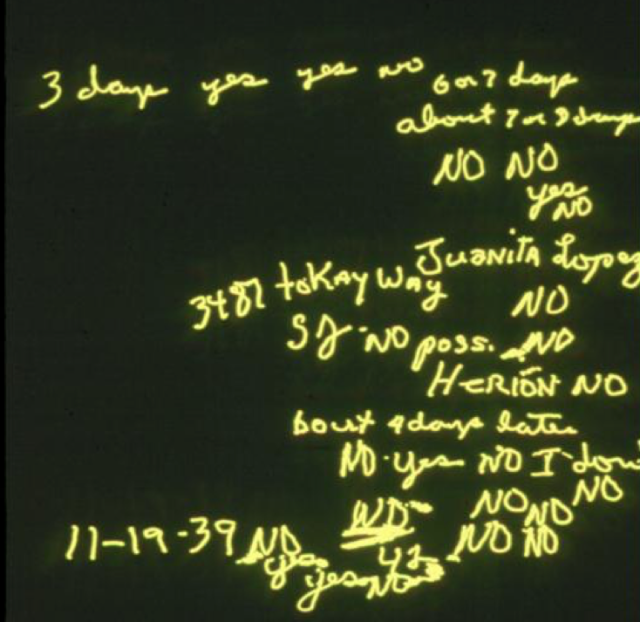 3 days yes yes no 6 or 7 days
about 7 or 9 days
NO NO
yes
NO
JUANITA Lopez
3487 toKAY WAY
NO
SJ - NO poss. NO
HERION NO
bout 4 days later
NO - yes NO I don't
NO
NO NO
WD
11-19-39 NO 42 NO NO
yes
yes NO